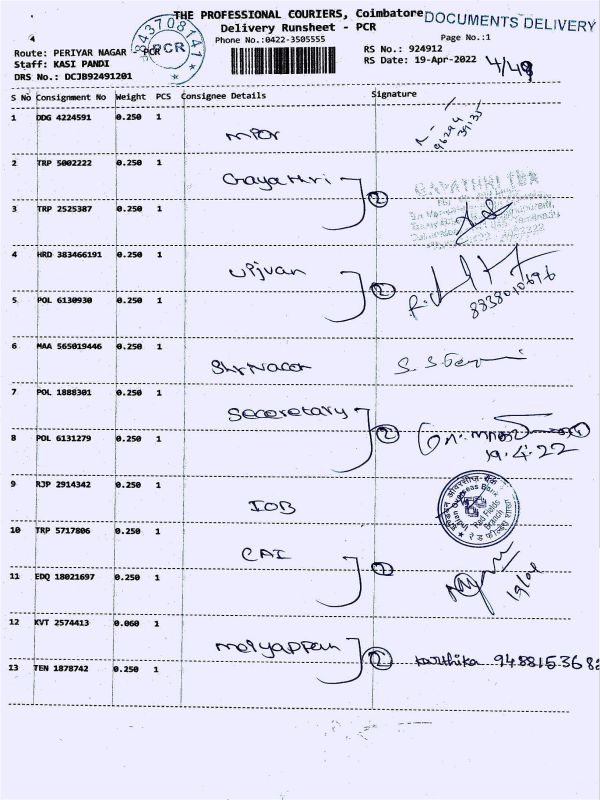 THE PROFESSIONAL COURIERS, Coimbatore
DOCUMENTS DELIVERY
Delivery Runsheet - PCR
Phone No.:0422-3505555
Page No.:1
4
843708141
PCR
Route: PERIYAR NAGAR - PCR
RS No.: 924912
Staff: KASI PANDI
RS Date: 19-Apr-2022
DRS No.: DCJB92491201
S No Consignment No Weight PCS Consignee Details Signature
1 DDG 4224591 0.250 1
96294
39135
2 TRP 5002222 0.250 1 Gayathri 2
GAYATHRI
3 TRP 2525387 0.250 1
4 HRD 383466191 0.250 1 Vijvan 2
8838010696
5 POL 6130930 0.250 1
6 MAA 565019446 0.250 1
7 POL 1888301 0.250 1 Seceretary 2
19.4.22
8 POL 6131279 0.250 1
9 RJP 2914342 0.250 1 IOB
Indian Overseas Bank
Red Fields
Branch
10 TRP 5717806 0.250 1 CAI 2
19/04
11 EDQ 18021697 0.250 1
12 KVT 2574413 0.060 1 Meiyappan 2 karthika 9488153682
13 TEN 1878742 0.250 1